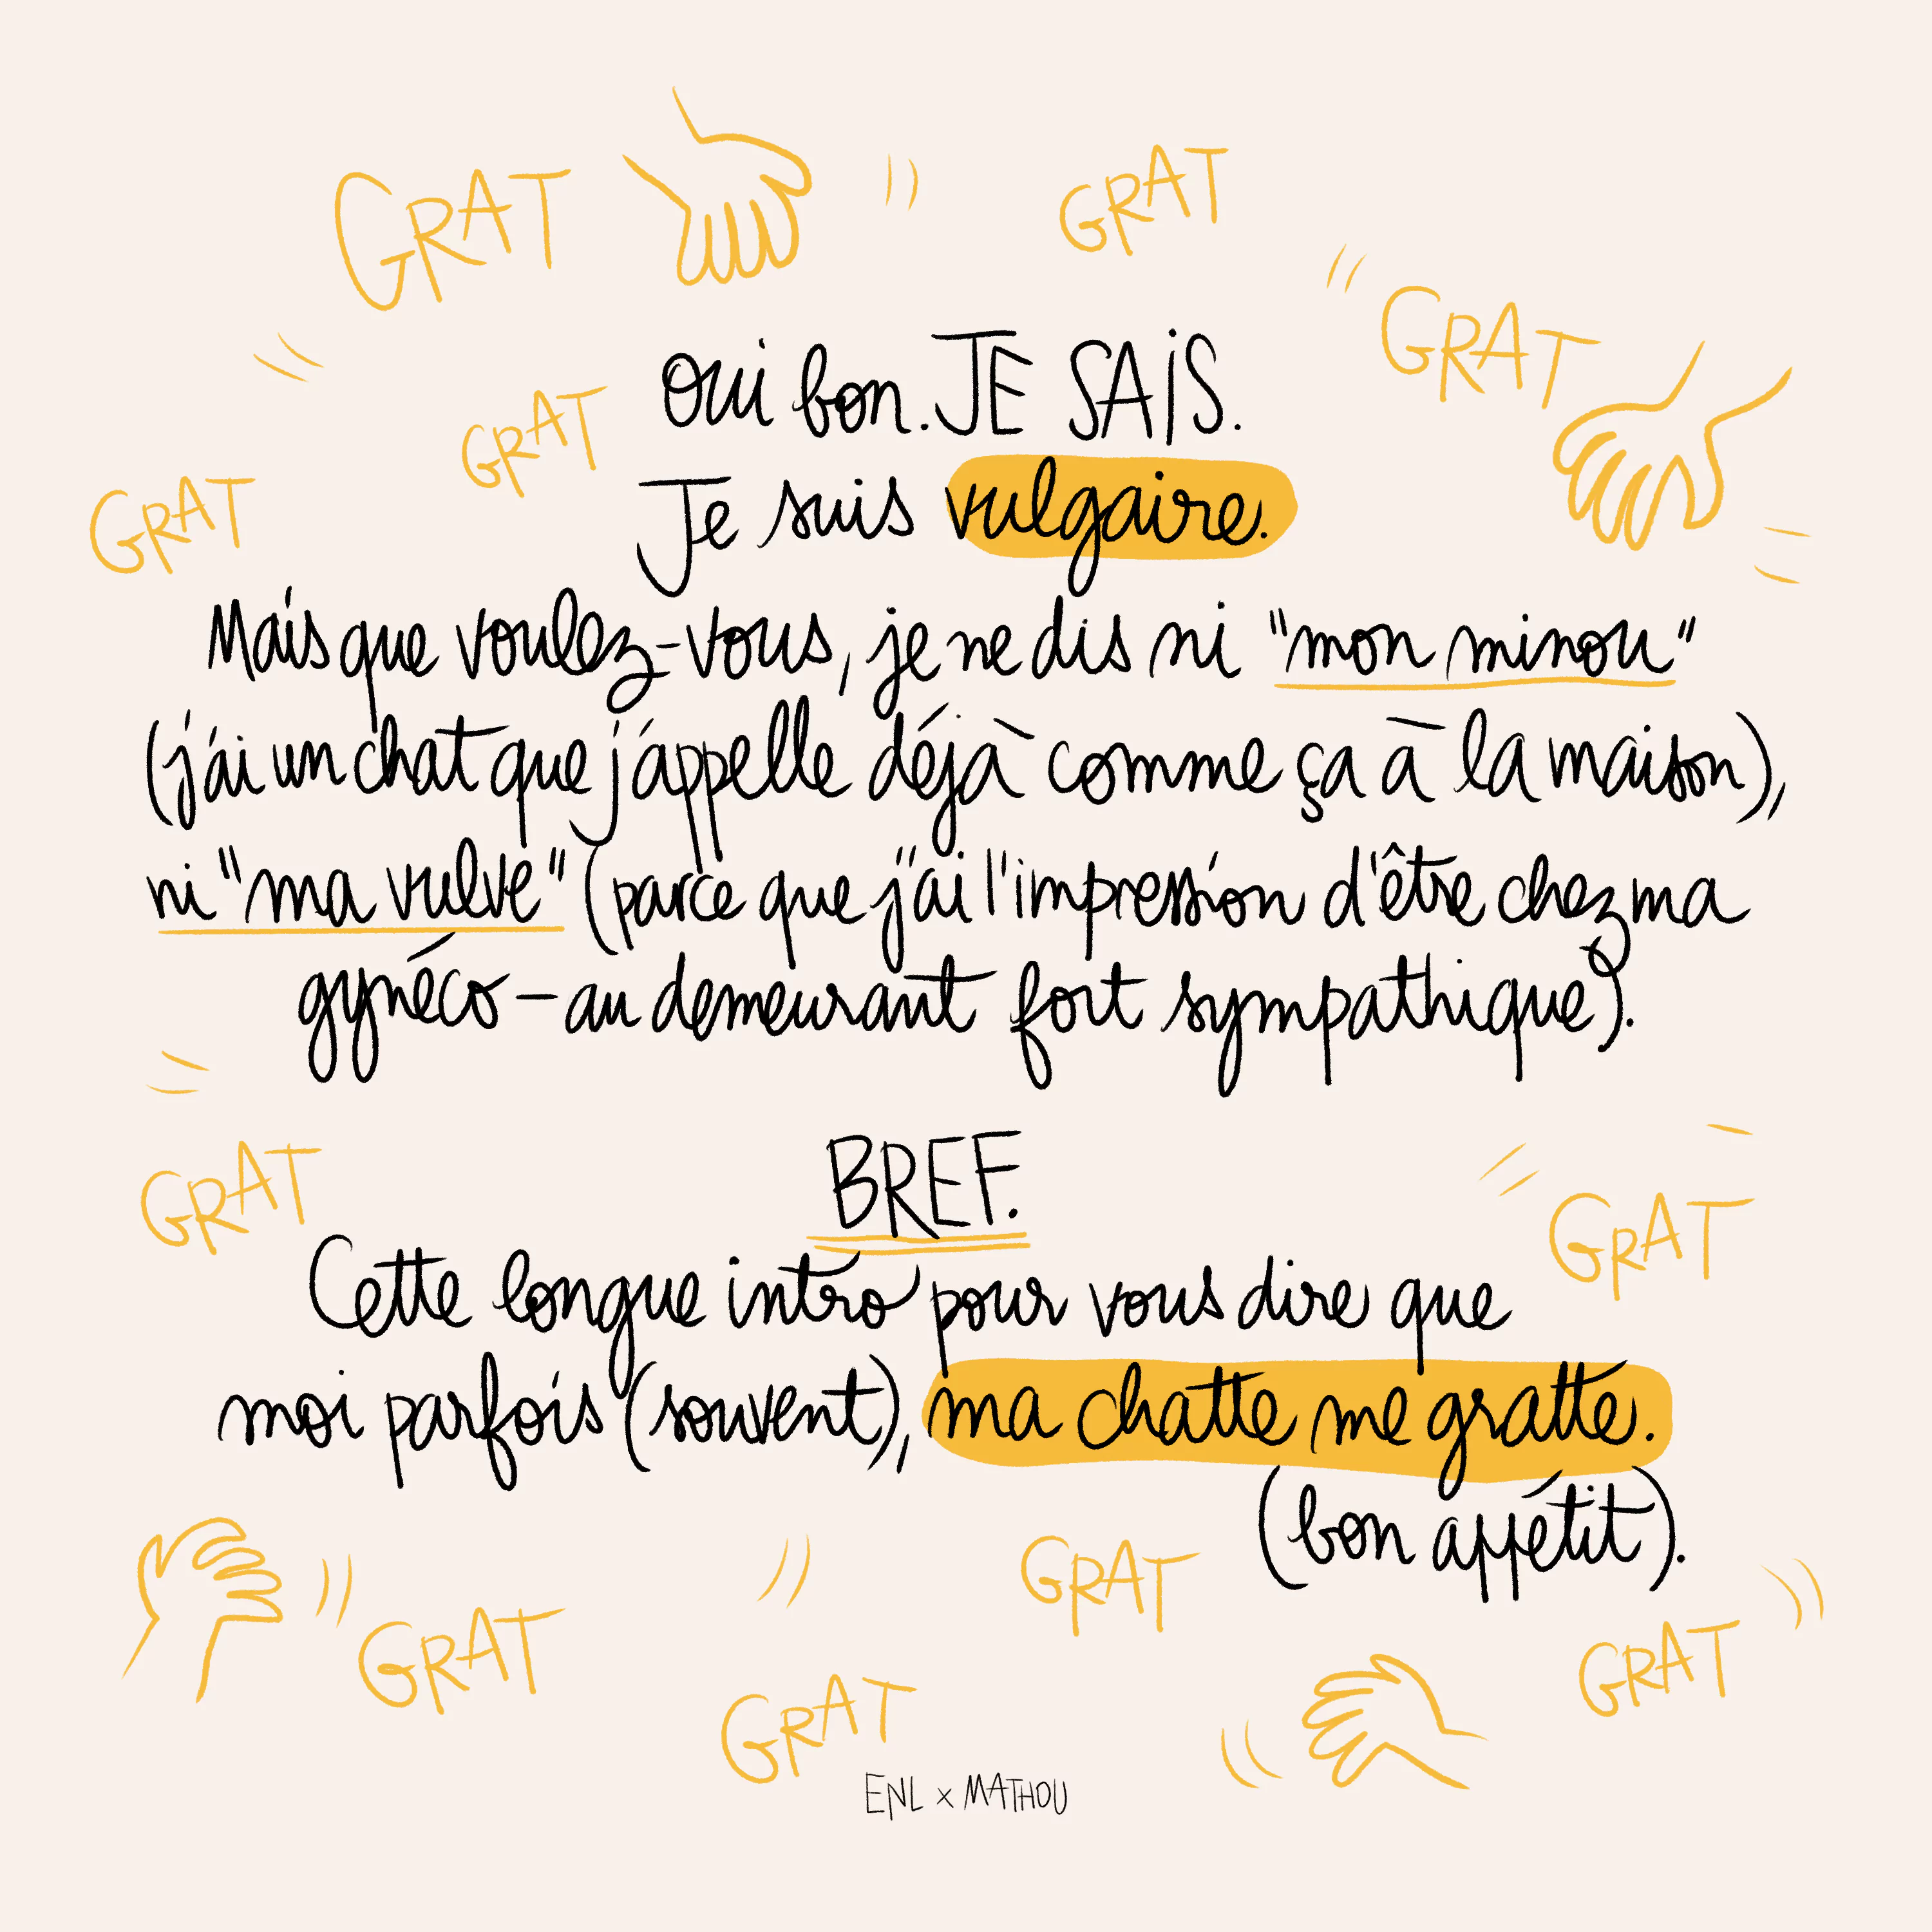 GRAT
GRAT
GRAT
GRAT
GRAT
Oui bon. JE SAIS.
Je suis vulgaire.
Mais que voulez-vous, je ne dis ni "mon minou"
(j'ai un chat que j'appelle déjà comme ça à la maison),
ni "ma vulve" (parce que j'ai l'impression d'être chez ma
gynéco - au demeurant fort sympathique).
BREF.
GRAT
GRAT
Cette longue intro pour vous dire que
moi parfois (souvent), ma chatte me gratte.
(bon appétit).
GRAT
GRAT
GRAT
GRAT
ENL x MATHOU